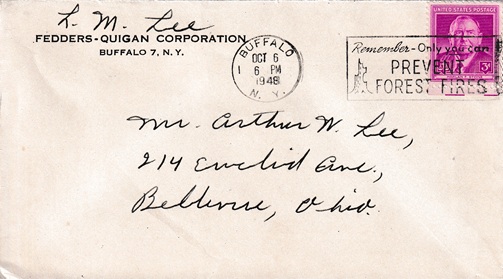 L. M. Lee
FEDDERS-QUIGAN CORPORATION
BUFFALO 7, N. Y.
BUFFALO
OCT 6
6 PM
1948
N. Y.
1
Remember-Only you can
PREVENT
FOREST FIRES
UNITED STATES POSTAGE
3¢
Mr. Arthur W. Lee,
214 Euclid Ave.,
Bellevue, Ohio.